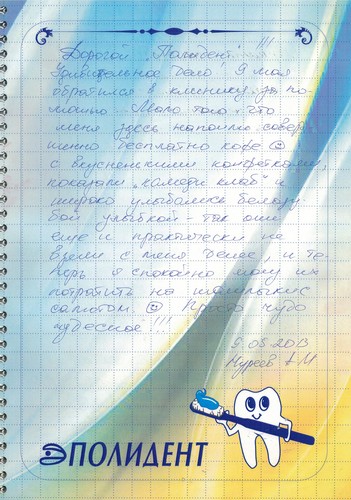 Дорогой „Полидент"...!!!
Удивительное дело. 9 мая
обратился в клинику за по-
мощью. Мало того, что
меня здесь напоили совер-
шенно бесплатно кофе
с вкуснейшими конфетками,
показали „камеди клаб" и
широко улыбались белозу-
бой улыбкой - так они
еще и практически не
взяли с меня денег, и те-
перь я спокойно могу их
потратить на шашлыки с
салютом. Просто чудо
чудесное!!!
9.05.2013
Нуреев А.М
ПОЛИДЕНТ